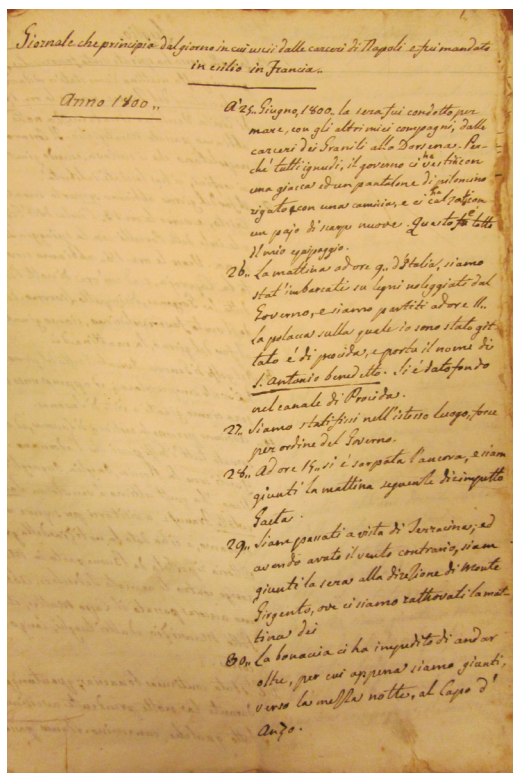 Giornale che principiò dal giorno in cui uscii dalle carceri di Napoli e fui mandato
in esilio in Francia..
Anno 1800..
A' 25.. Giugno, 1800. la sera fui condotto per
mare, con gli altri miei compagni, dalle
carceri dei Granili alla Darsena. Per-
ché tutti ignudi, il governo ci ha vestiti con
una giacca ed un pantalone di peloncino
rigato, con una camicia, e ci ha calzati con
un pajo di scarpe nuove. Questo è tutto
il mio equipaggio.
26.. La mattina ad ore 9.. d'Italia, siamo
stat'imbarcati su legni noleggiati dal
Governo, e siamo partiti ad ore 11..
La polacca sulla quale io sono stato git-
tato é di procida, e porta il nome di
S. Antonio benedetto. Si é dato fondo
nel canale di Procida.
27.. Siamo stati fissi nell'istesso luogo, forse
per ordine del Governo.
28.. Ad ore 15.. si é sarpata l'ancora, e siam
giunti la mattina seguente dirimpetto
Gaeta.
29.. Siam passati a vista di Terracina; ed
avendo avuto il vento contrario, siam
giunti la sera alla direzione di Monte
Girgento, ove ci siamo rattrovati la mat-
tina dei
30.. La bonaccia ci ha impedito di andar
oltre, per cui appena siamo giunti,
verso la mezza notte, al Capo d'
Anzo.